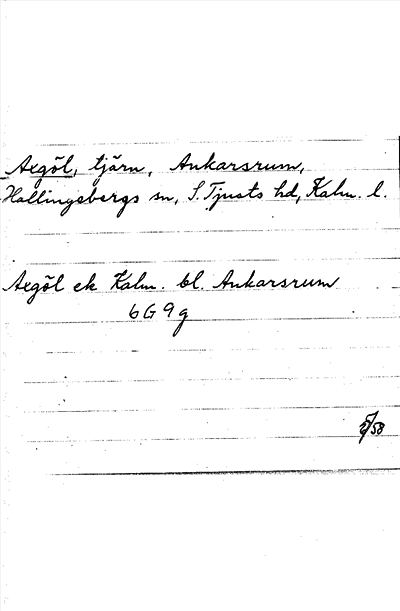 Axgöl, tjärn, Ankarsrum,
Hallingebergs sn, S. Tjusts hd, Kalm. l.
Axgöl ek Kalm. bl. Ankarsrum
6G 9g
58